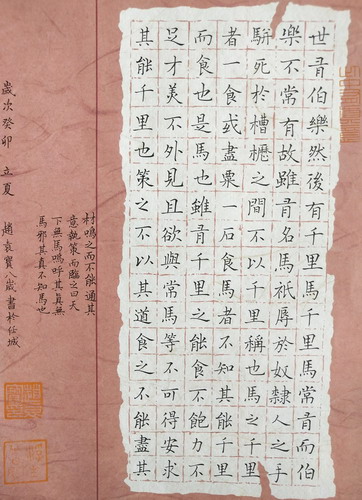 世有伯樂然後有千里馬千里馬常有而伯
樂不常有故雖有名馬祇辱於奴隸人之手
駢死於槽櫪之間不以千里稱也馬之千里
者一食或盡粟一石食馬者不知其能千里
而食也是馬也雖有千里之能食不飽力不
足才美不外見且欲與常馬等不可得安求
其能千里也策之不以其道食之不能盡其
材鳴之而不能通其
意執策而臨之曰天
下無馬嗚呼其真無
馬邪其真不知馬也
歲次癸卯 立夏 趙袁寶八歲書於任城